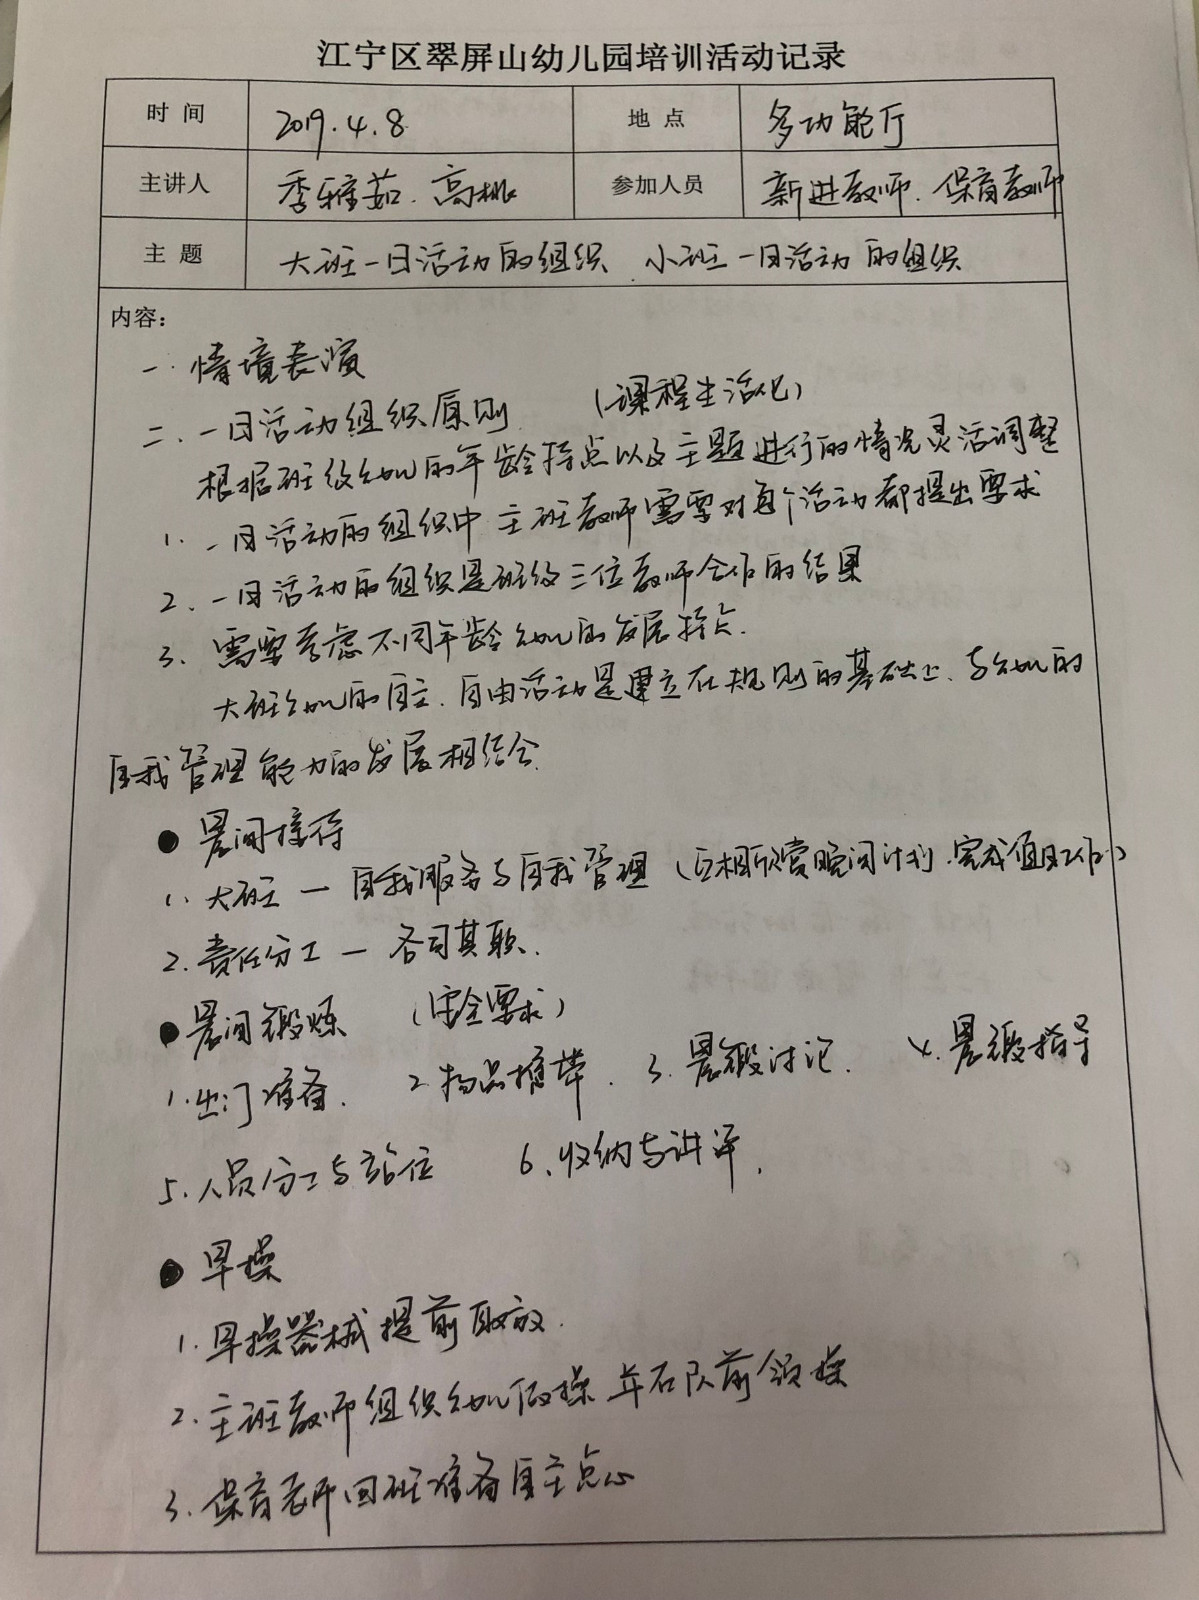 江宁区翠屏山幼儿园培训活动记录
时间 2019.4.8 地点 多功能厅
主讲人 季雅茹.高桃 参加人员 新进教师.保育教师
主题 大班一日活动的组织 小班一日活动的组织
内容：
一.情境表演
二.一日活动组织原则 (课程生活化)
根据班级幼儿的年龄特点以及主题进行的情况灵活调整
1.一日活动的组织中主班教师需要对每个活动都提出要求
2.一日活动的组织是班级三位教师合作的结果
3.需要考虑不同年龄幼儿的发展特点.
大班幼儿的自主.自由活动是建立在规则的基础上.与幼儿的
自我管理能力的发展相结合.
●晨间接待
1.大班一自我服务与自我管理(互相欣赏晚间计划.完成值日工作)
2.责任分工一各司其职.
●晨间锻炼 (安全要求)
1.出门准备. 2.物品携带. 3.晨锻讨论. 4.晨锻指导
5.人员分工与站位 6.收纳与讲评.
●早操
1.早操器械提前取放.
2.主班教师组织幼儿做操并在队前领操
3.保育老师回班准备自主点心